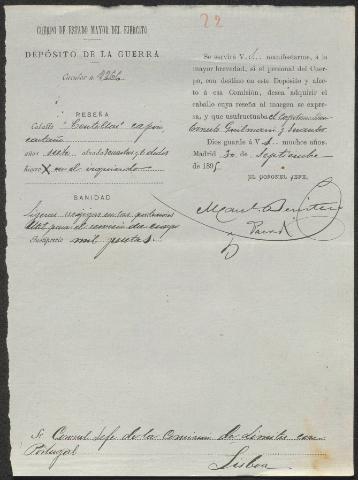 22
CUERPO DE ESTADO MAYOR DEL EJÉRCITO
DEPÓSITO DE LA GUERRA
Circular n.
RESEÑA
Caballo "Centella" capón
castaño
años siete alzada
hierro X en el
SANIDAD
Ligeros
útil para el servicio de
Presupuesto mil pesetas
Se servirá V. S. manifestarme, á la
mayor brevedad, si el personal del Cuer-
po, con destino en ese Depósito y afec-
to á esa Comisión, desea adquirir el
caballo cuya reseña al margen se expre-
sa, y que usufructuaba el Capitán Don
Ernesto
Dios guarde á V. S. muchos años.
Madrid 30 de Septiembre
de 1895
EL CORONEL JEFE,
Manuel Benítez
Sr. Coronel Jefe de la Comisión de límites con
Portugal
Lisboa